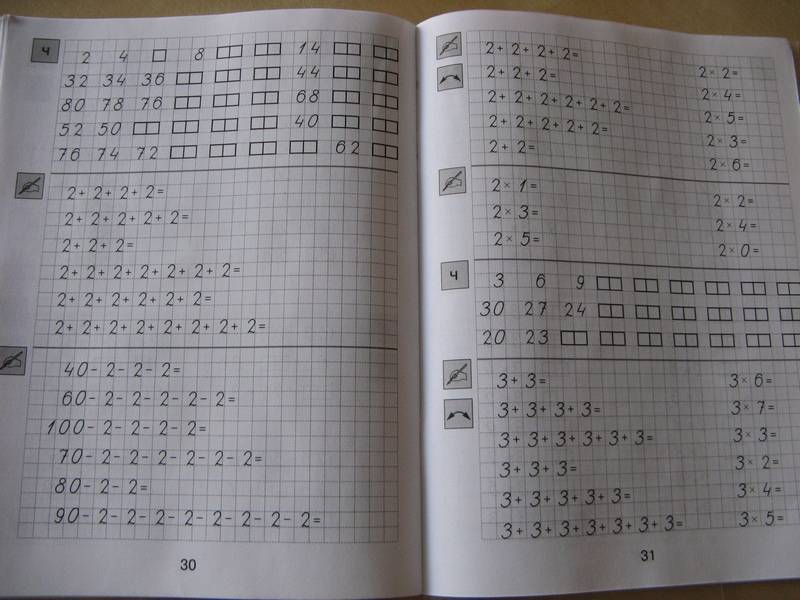 ч 2 4 8 14
32 34 36 44
80 78 76 68
52 50 40
76 74 72 62
2+2+2+2=
2+2+2+2+2=
2+2+2=
2+2+2+2+2+2+2=
2+2+2+2+2+2=
2+2+2+2+2+2+2+2=
40-2-2-2=
60-2-2-2-2-2=
100-2-2-2-2=
70-2-2-2-2-2-2=
80-2-2=
90-2-2-2-2-2-2-2-2=
30
2+2+2+2=
2+2+2= 2×2=
2+2+2+2+2+2= 2×4=
2+2+2+2+2= 2×5=
2+2= 2×3=
2×6=
2×1= 2×2=
2×3= 2×4=
2×5= 2×0=
ч 3 6 9
30 27 24
20 23
3+3= 3×6=
3+3+3+3= 3×7=
3+3+3+3+3+3= 3×3=
3+3+3= 3×2=
3+3+3+3+3= 3×4=
3+3+3+3+3+3+3= 3×5=
31